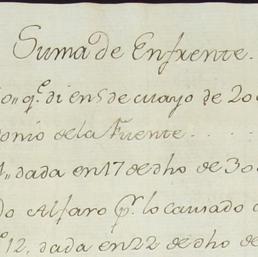 Suma de Enfrente.
io,, q.e di en 5 de mayo de 20
onio de la Fuente . . . .
1,, dada en 17 de dho de 30
do Alfaro p.r lo causado
o 12, dada en 22 de dho de